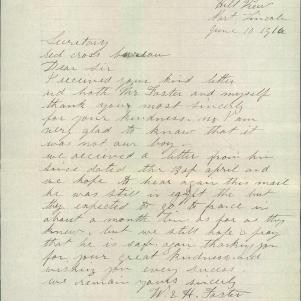 Hill View
Port Lincoln
June 10 1916
Secretary
Red cross bureau
Dear Sir
I received your kind letter
and both Mr Foster and myself
thank you most sincerely
for your kindness. no I am
very glad to know that it
was not our boy.
we received a letter from him
since dated the 23 of april and
we hope to hear again this mail
he was still in egypt the but
they expected to go to france in
about a month time as far as they
knew, but we still hope & pray
that he is safe again thanking you
for your great kindness and
wishing you every success
we remain yours sincerely
W. & H. Foster